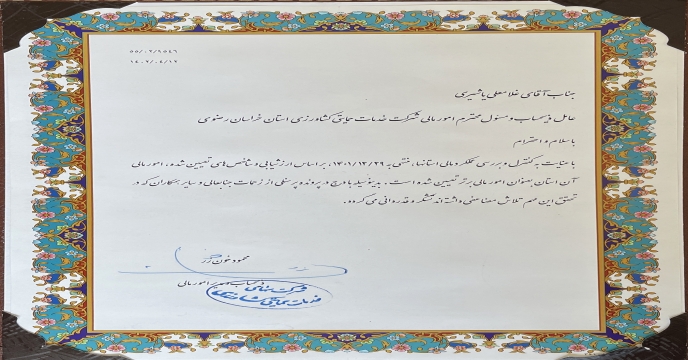 ۵۵/۰۲/۹۵۴۶
۱۴۰۲/۰۴/۱۲
جناب آقای غلامعلی یاشیری
عامل ذیحساب و مسئول محترم امور مالی شرکت خدمات حمایتی کشاورزی استان خراسان رضوی
با سلام و احترام
با عنایت به کنترل و بررسی عملکرد مالی استانها، منتهی به ۱۴۰۱/۱۲/۲۹، بر اساس ارزشیابی و شاخص های تعیین شده، امور مالی
آن استان بعنوان امور مالی برتر تعیین شده است. بدینوسیله با درج در پرونده پرسنلی از زحمات جنابعالی و سایر همکاران که در
تحقق این مهم تلاش مضاعفی داشته اند تشکر و قدردانی می گردد.
محمود خون زر
ذیحساب و مدیر امور مالی
شرکت سهامی
خدمات حمایتی کشاورزی